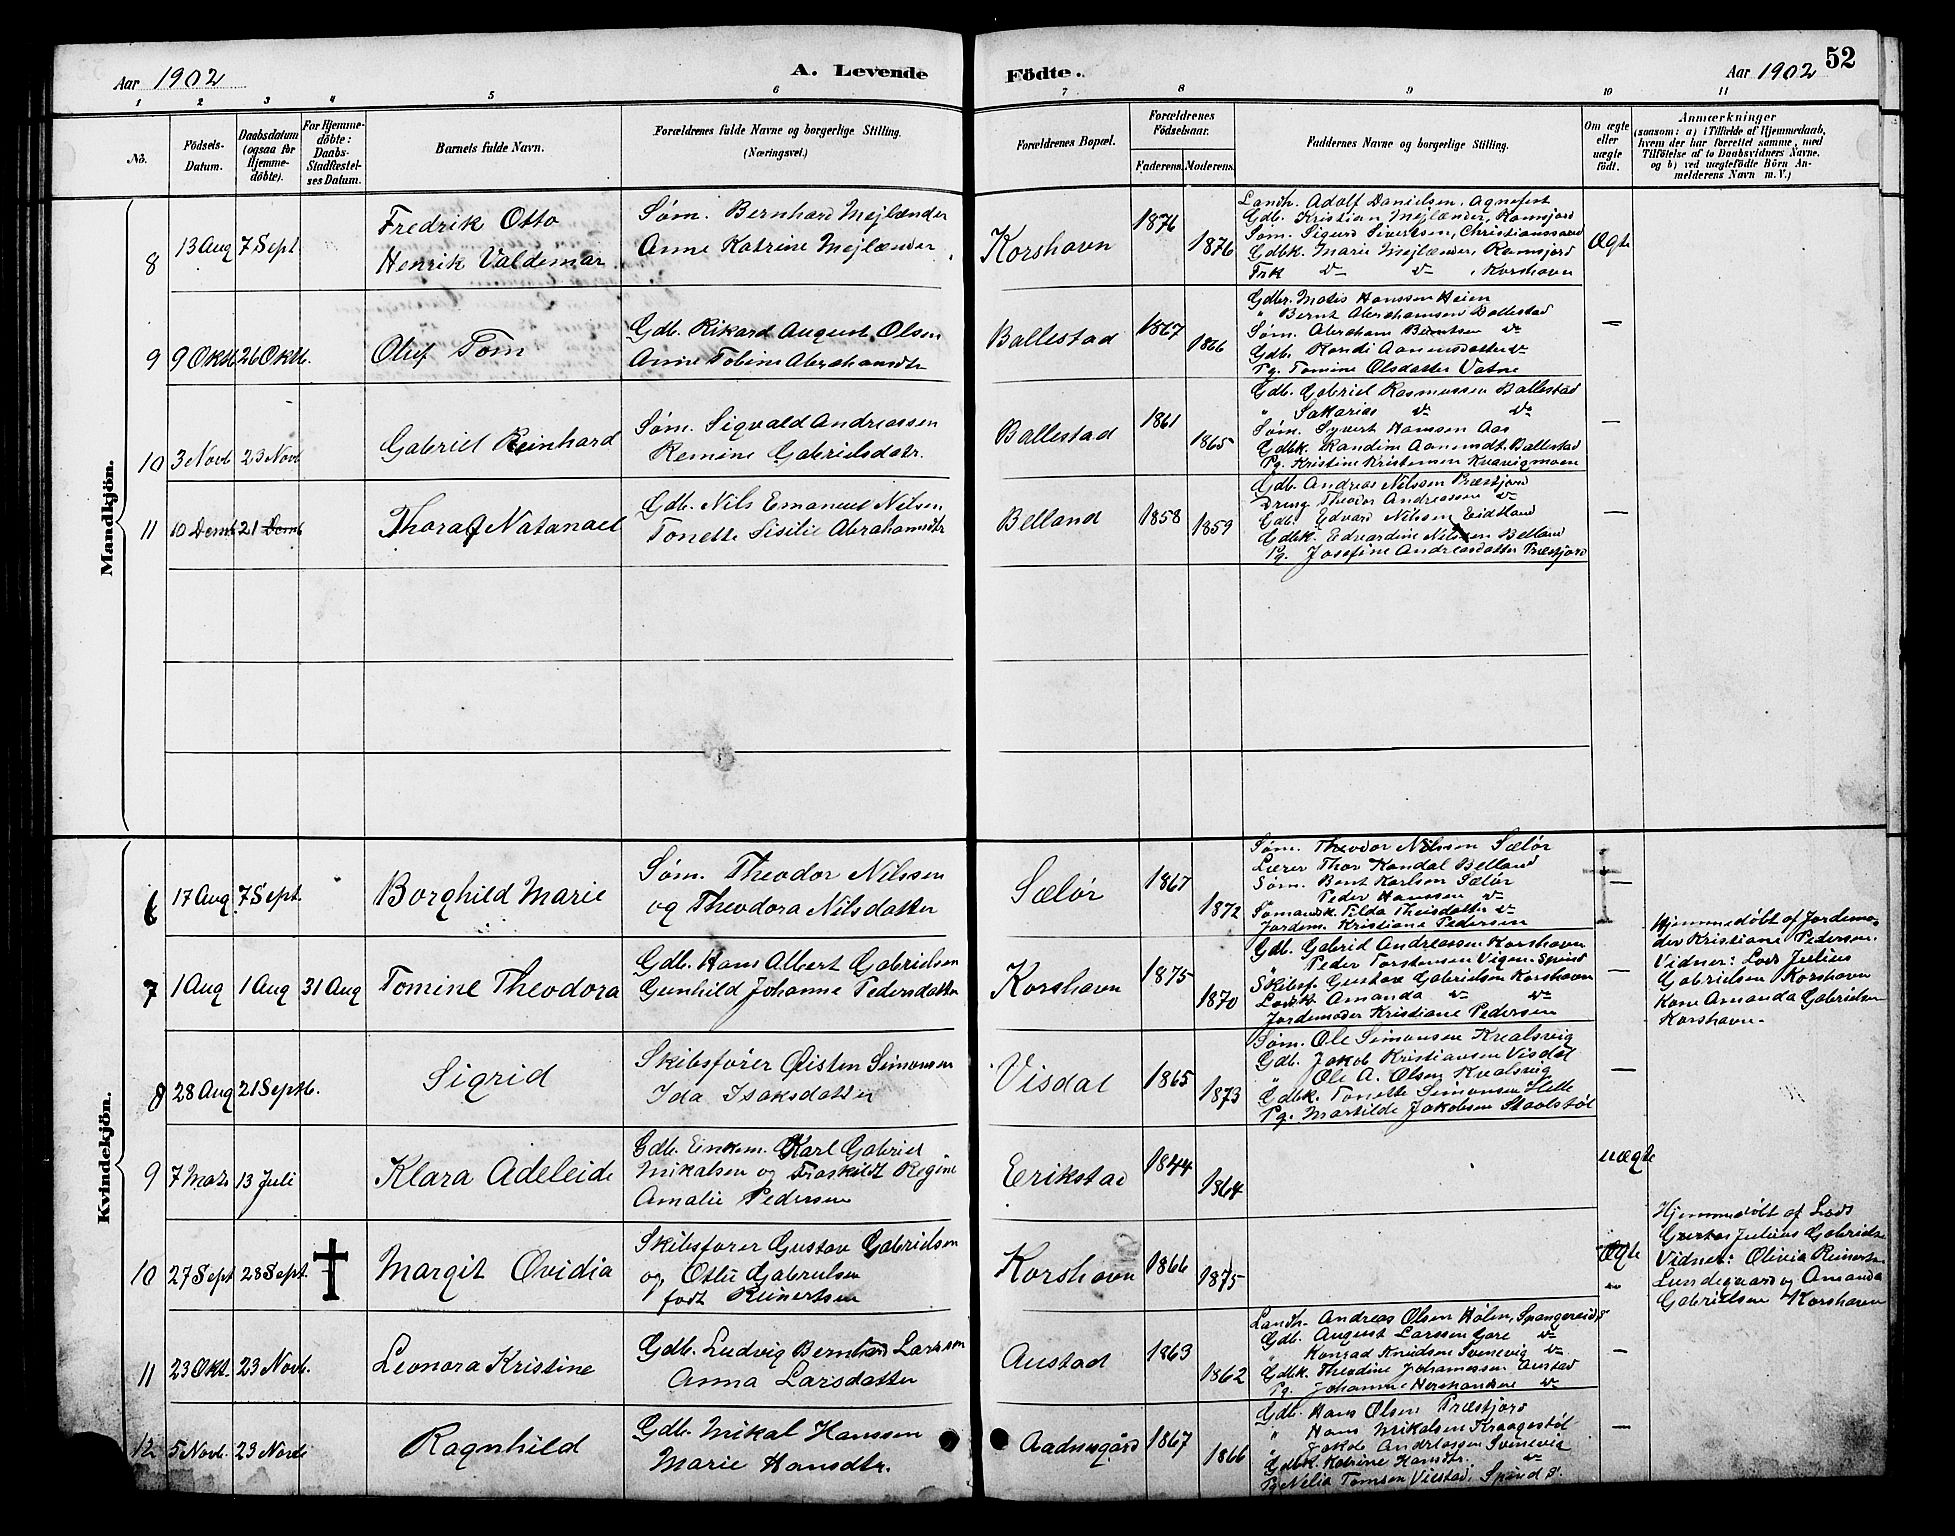 Aar 1902
A. Levende Födte.
Aar 1902
52
1 2 3 4 5 6 7 8 9 10 11
Nö.
Födsels-Datum.
Daabsdatum (ogsaa for Hjemme-döbte).
For Hjemme-döbte: Daabs-Stadfæstel-ses Datum.
Barnets fulde Navn.
Forældrenes fulde Navne og borgerlige Stilling.
(Næringsvei.)
Forældrenes Bopæl.
Forældrenes Födselsaar.
Faderens. Moderens.
Faddernes Navne og borgerlige Stilling.
Om ægte eller uægte födt.
Anmærkninger
(saasom: a) i Tilfælde af Hjemmedaab,
hvem der har forrettet samme, med
Tilföielse af to Daabsvidners Navne,
og b) ved uægtefödte Börn An-
melderens Navn m. V.)
Mandkjön.
8 13 Aug 7 Sept.
Fredrik Otto
Henrik Valdemar
Søm. Bernhard Mejlænder
Anne Katrine Mejlænder
Korshavn
1876 1876
Landh. Adolf Danielsen, Agnefest
Gdb. Kristian Mejlænder, Ramsjord
Søm. Sigurd Sivertsen, Christianssand
Gdbk. Marie Mejlænder, Ramsjord
Frk do do, Korshavn
Ægte
9 9 Okt. 26 Okt.
Oluf Tom
Gdb. Rikard August Olsen
Anne Tobine Abrahamsdtr
Ballestad
1867 1866
Gdbr. Matis Hanssen Heien
" Bernt Abrahamsen Ballestad
Søm. Abraham Berntsen do
Gdb. Randi Aanensdatter do
Pg. Tomine Olsdatter Vatne
—
10 3 Novb 23 Novb
Gabriel Reinhard
Søm. Sigvald Andreassen
Remine Gabrielsdatr.
Ballestad
1861 1865
Gdb. Gabriel Rasmussen Ballestad
" Sakarias do do
Søm. Syvert Hanssen Aas
Gdbk. Randine Aanensdt. Ballestad
Pg. Kristine Kristensen Kvavigmoen
—
11 10 Demb 21 Demb
Thoralf Natanael
Gdb. Nils Emanuel Nilsen
Tonette Sisilie Abrahamsdtr
Belland
1858 1859
Gdb. Andreas Nilssen Præstjord
Dreng Theodor Andreassen do
Gdb. Edvard Nilssen Eidsland
Gdbk. Edvardine Nilssen Belland
Pg. Josefine Andreasdatter Præstjord
—
Kvindekjön.
6 17 Aug 7 Sept.
Borghild Marie
Søm. Theodor Nilssen
og Theodora Nilsdatter
Sælør
1867 1872
Søm. Theodor Nilssen Sælør
Lærer Thor Kandal Belland
Søm. Bent Karlsen Sælør
Peder Hanssen do
Sømandsk. Tilda Theisdatter do
Jordem. Kristiane Pedersen
—
7 1 Aug 1 Aug 31 Aug
Tomine Theodora
Gdb. Hans Albert Gabrielsen
Gunhild Johanne Pedersdatter
Korshavn
1875 1870
Gdb. Gabriel Andreassen Korshavn
" Peder Torstensen Vigen Spind
Skibsf. Gustav Gabrielsen Korshavn
Lodsk. Amanda do do
Jordemoder Kristiane Pedersen
—
Hjemmedøbt af Jordemo-
der Kristiane Pedersen.
Vidner: Lods Julius
Gabrielsen Korshavn
Kone Amanda Gabrielsen
Korshavn.
8 28 Aug 21 Septb.
Sigrid
Skibsfører Øisten Simonsen
Ida Isaksdatter
Visdal
1865 1873
Søm. Ole Simonsen Kvalsvig
Gdb. Jakob Kristiansen Visdal
" Ole A. Olsen Kvalsvig
Gdbk. Tonette Simonsen Helle
Pg. Martilde Jakobsen Staalstøl
—
9 7 Mars 13 Juli
Klara Adeleide
Gdb. Enkem. Karl Gabriel
Mikalsen og Regine
Amalie Pedersen
Eerikstad
1844 1864
uægte
10 27 Sept 28 Sept.
Margit Ovidia
Skibsfører Gustav Gabrielsen
og Otlie Gabrielsen
født Reinertsen
Korshavn
1866 1875
Ægte
—
Hjemmedøbt af Lods
Julius Gabrielsen
Vidner: Olivia Reinertsen
Lundegaard og Amanda
Gabrielsen Korshavn
11 23 Okt. 23 Novb.
Leonora Kristine
Gdb. Ludvig Bernhard Larssen
Anna Larsdatter
Austad
1863 1862
Landh. Andreas Olsen Holm, Spangereid
Gdb. August Larssen Gare do
" Konrad Knudsen Svenevig do
Gdbk. Theodine Johannessen Austad
Pg. Johanne Hermansen do
—
12 5 Novb. 23 Novb
Ragnhild
Gdb. Mikal Hanssen
Marie Hansdtr.
Aadnegård
1867 1866
Gdb. Hans Olsen Præstjord
" Hans Mikalsen Kraagestøl
" Jakob Andreassen Svenevig
Gdbk. Katrine Hansdtr. do
Pg Nelia Tomsen Vilstad, Spind S.
—